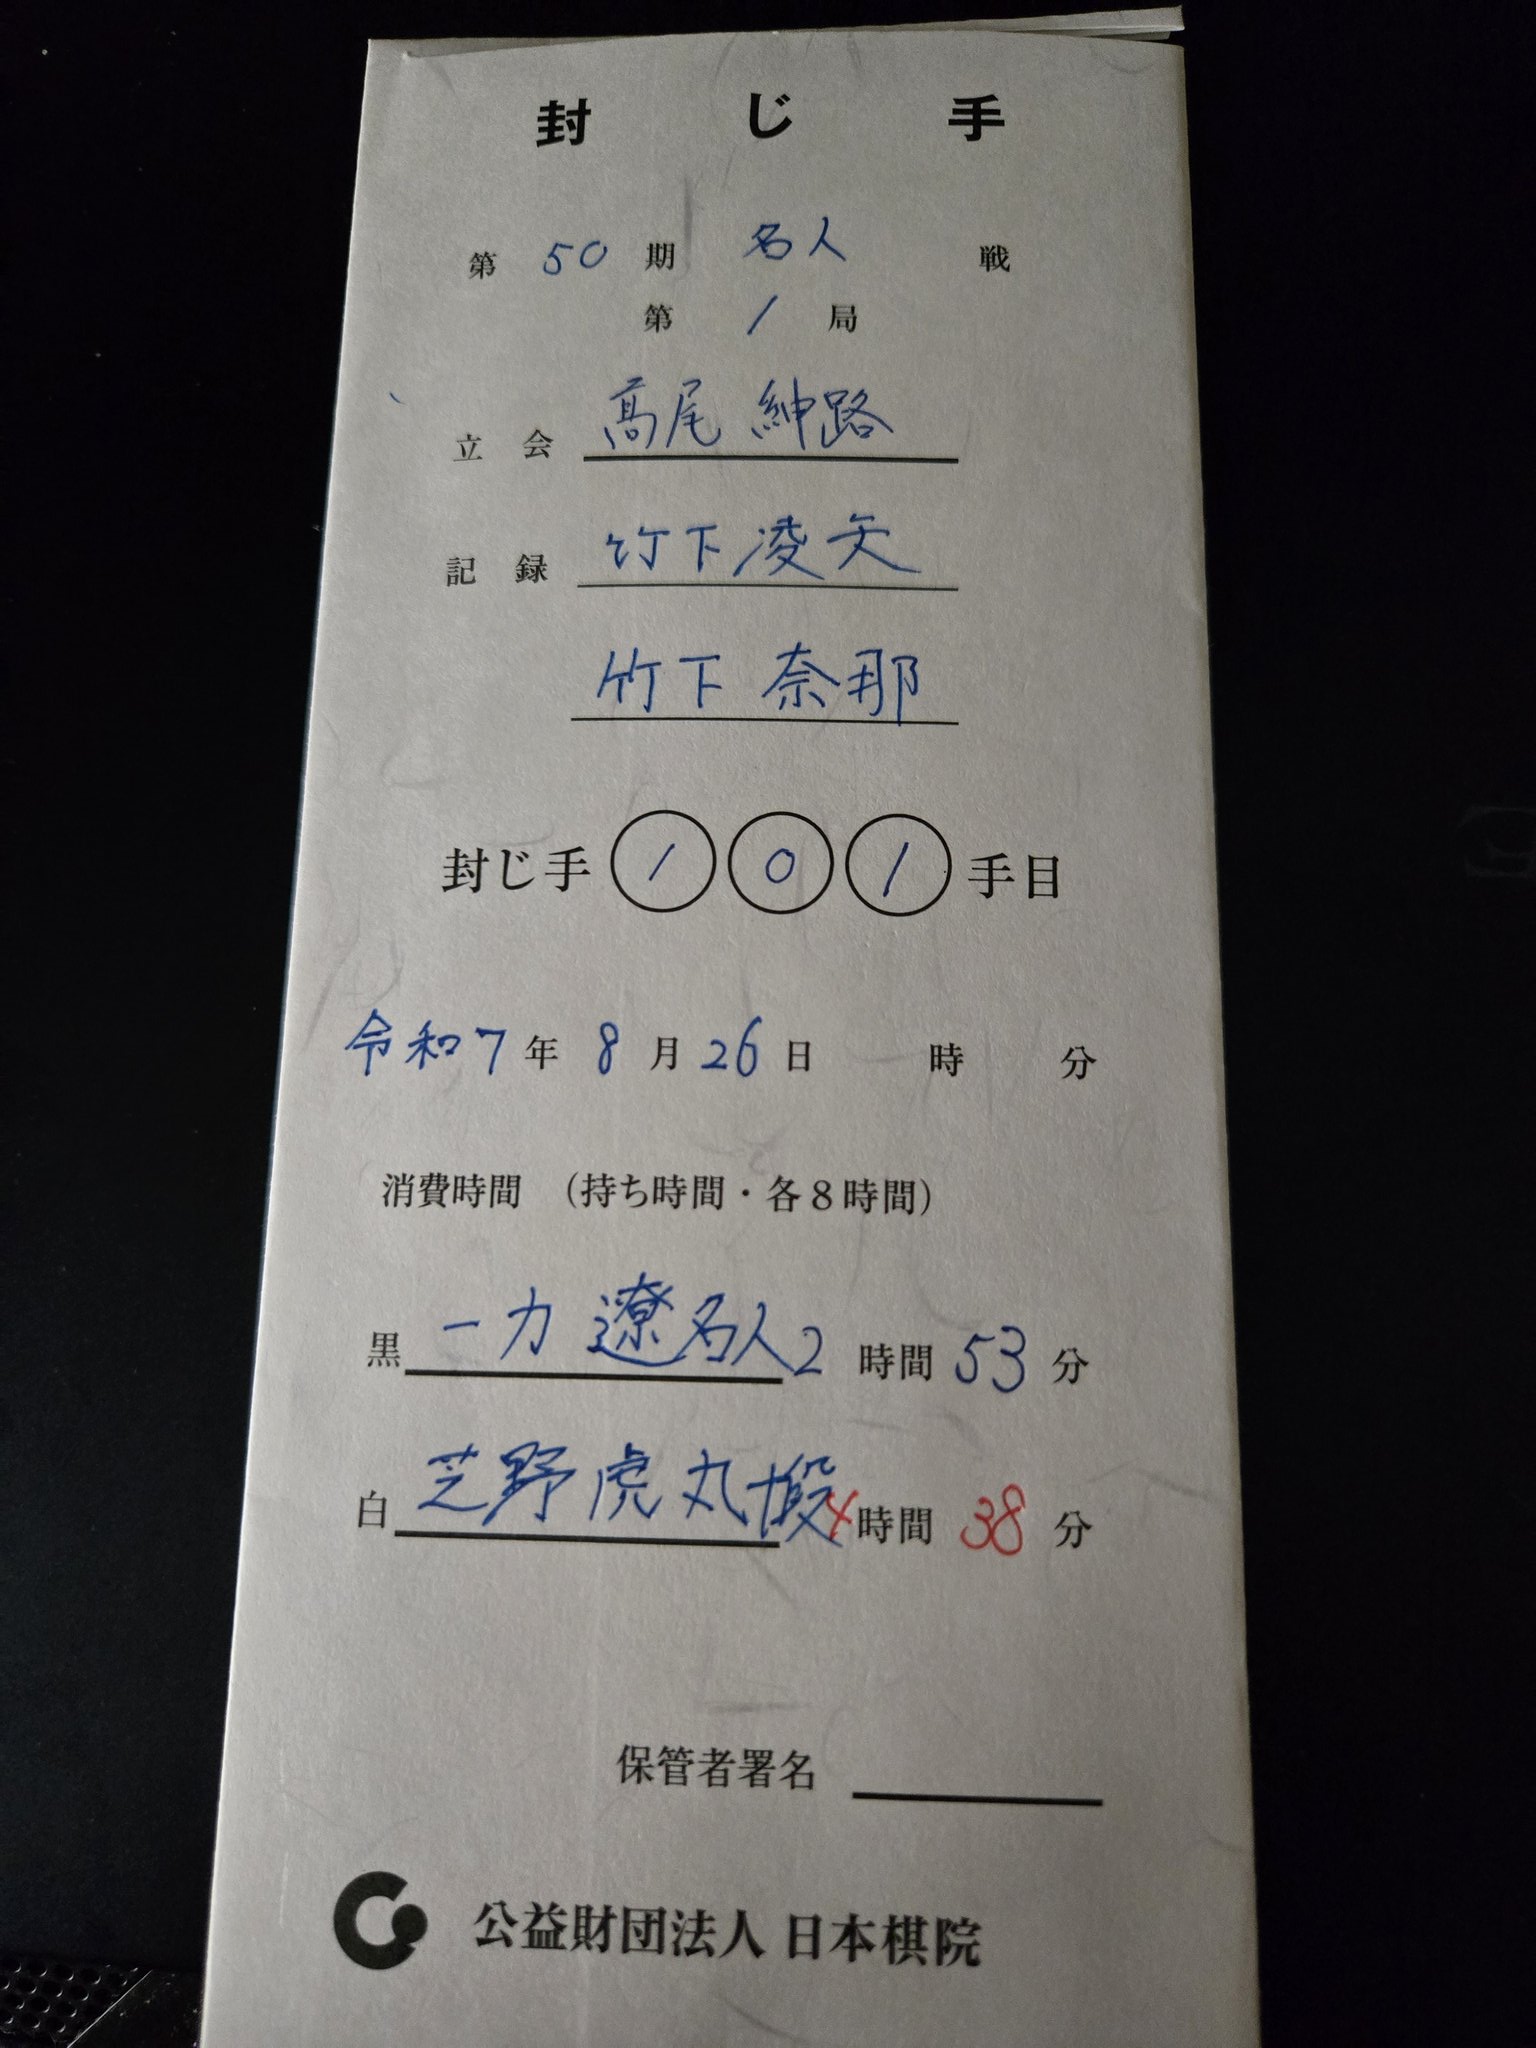 封じ手
第 50 期 名人 戦
第 1 局
立会 髙尾 紳路
記録 竹下凌矢
竹下 奈那
封じ手 1 0 1 手目
令和7年 8月26日 時 分
消費時間 (持ち時間・各8時間)
黒 一力 遼名人 2時間53分
白 芝野虎丸十段 4時間38分
保管者署名
公益財団法人 日本棋院